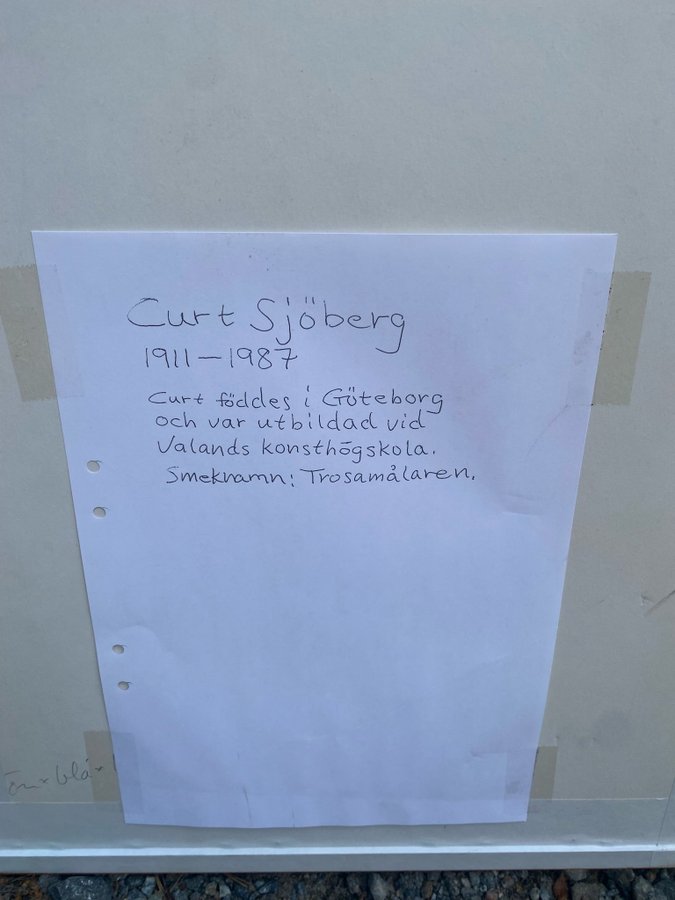 Curt Sjöberg
1911–1987
Curt föddes i Göteborg
och var utbildad vid
Valands konsthögskola.
Smeknamn: Trosamålaren.
blå